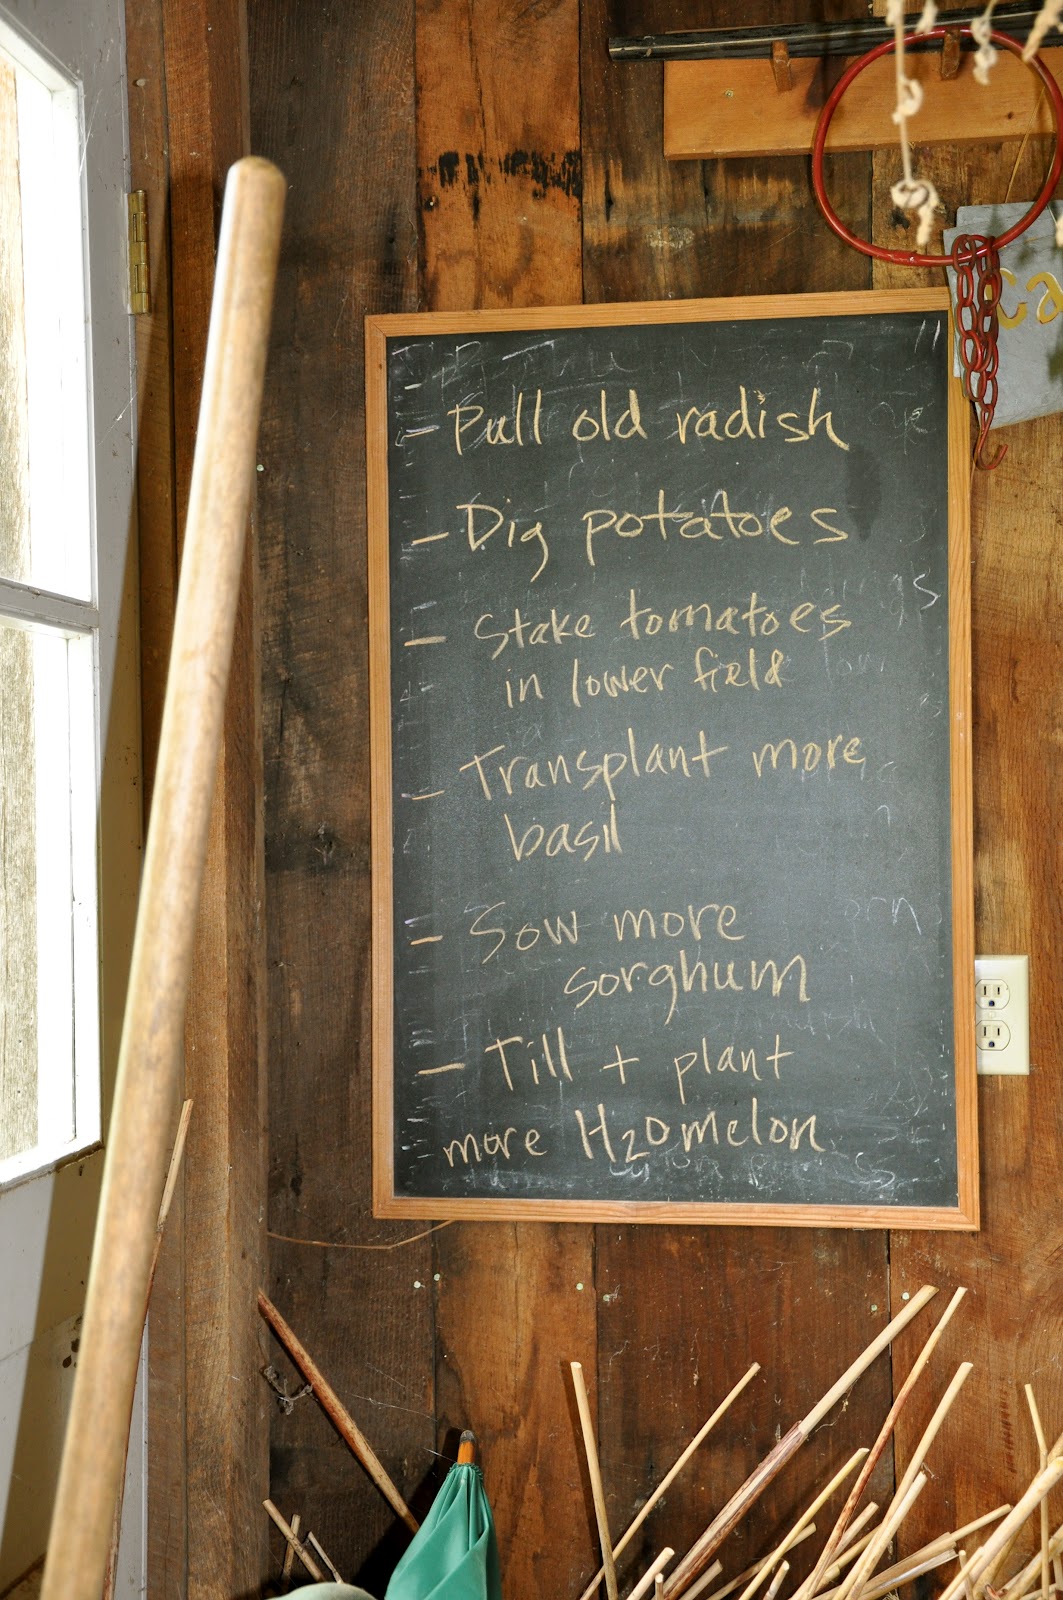 - Pull old radish
- Dig potatoes
- Stake tomatoes
in lower field
- Transplant more
basil
- Sow more
sorghum
- Till + plant
more H2Omelon